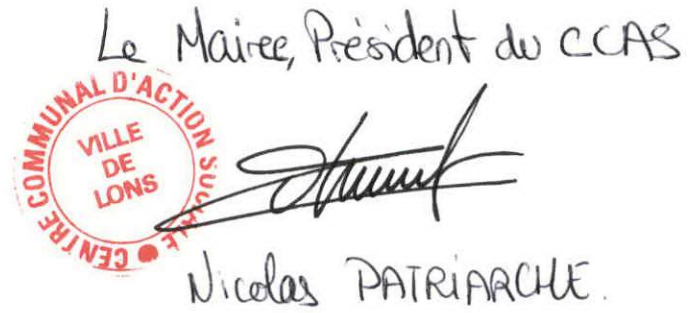 Le Maire, Président du CCAS
CENTRE COMMUNAL D'ACTION SOCIALE
VILLE
DE
LONS
Nicolas PATRIARCHE.